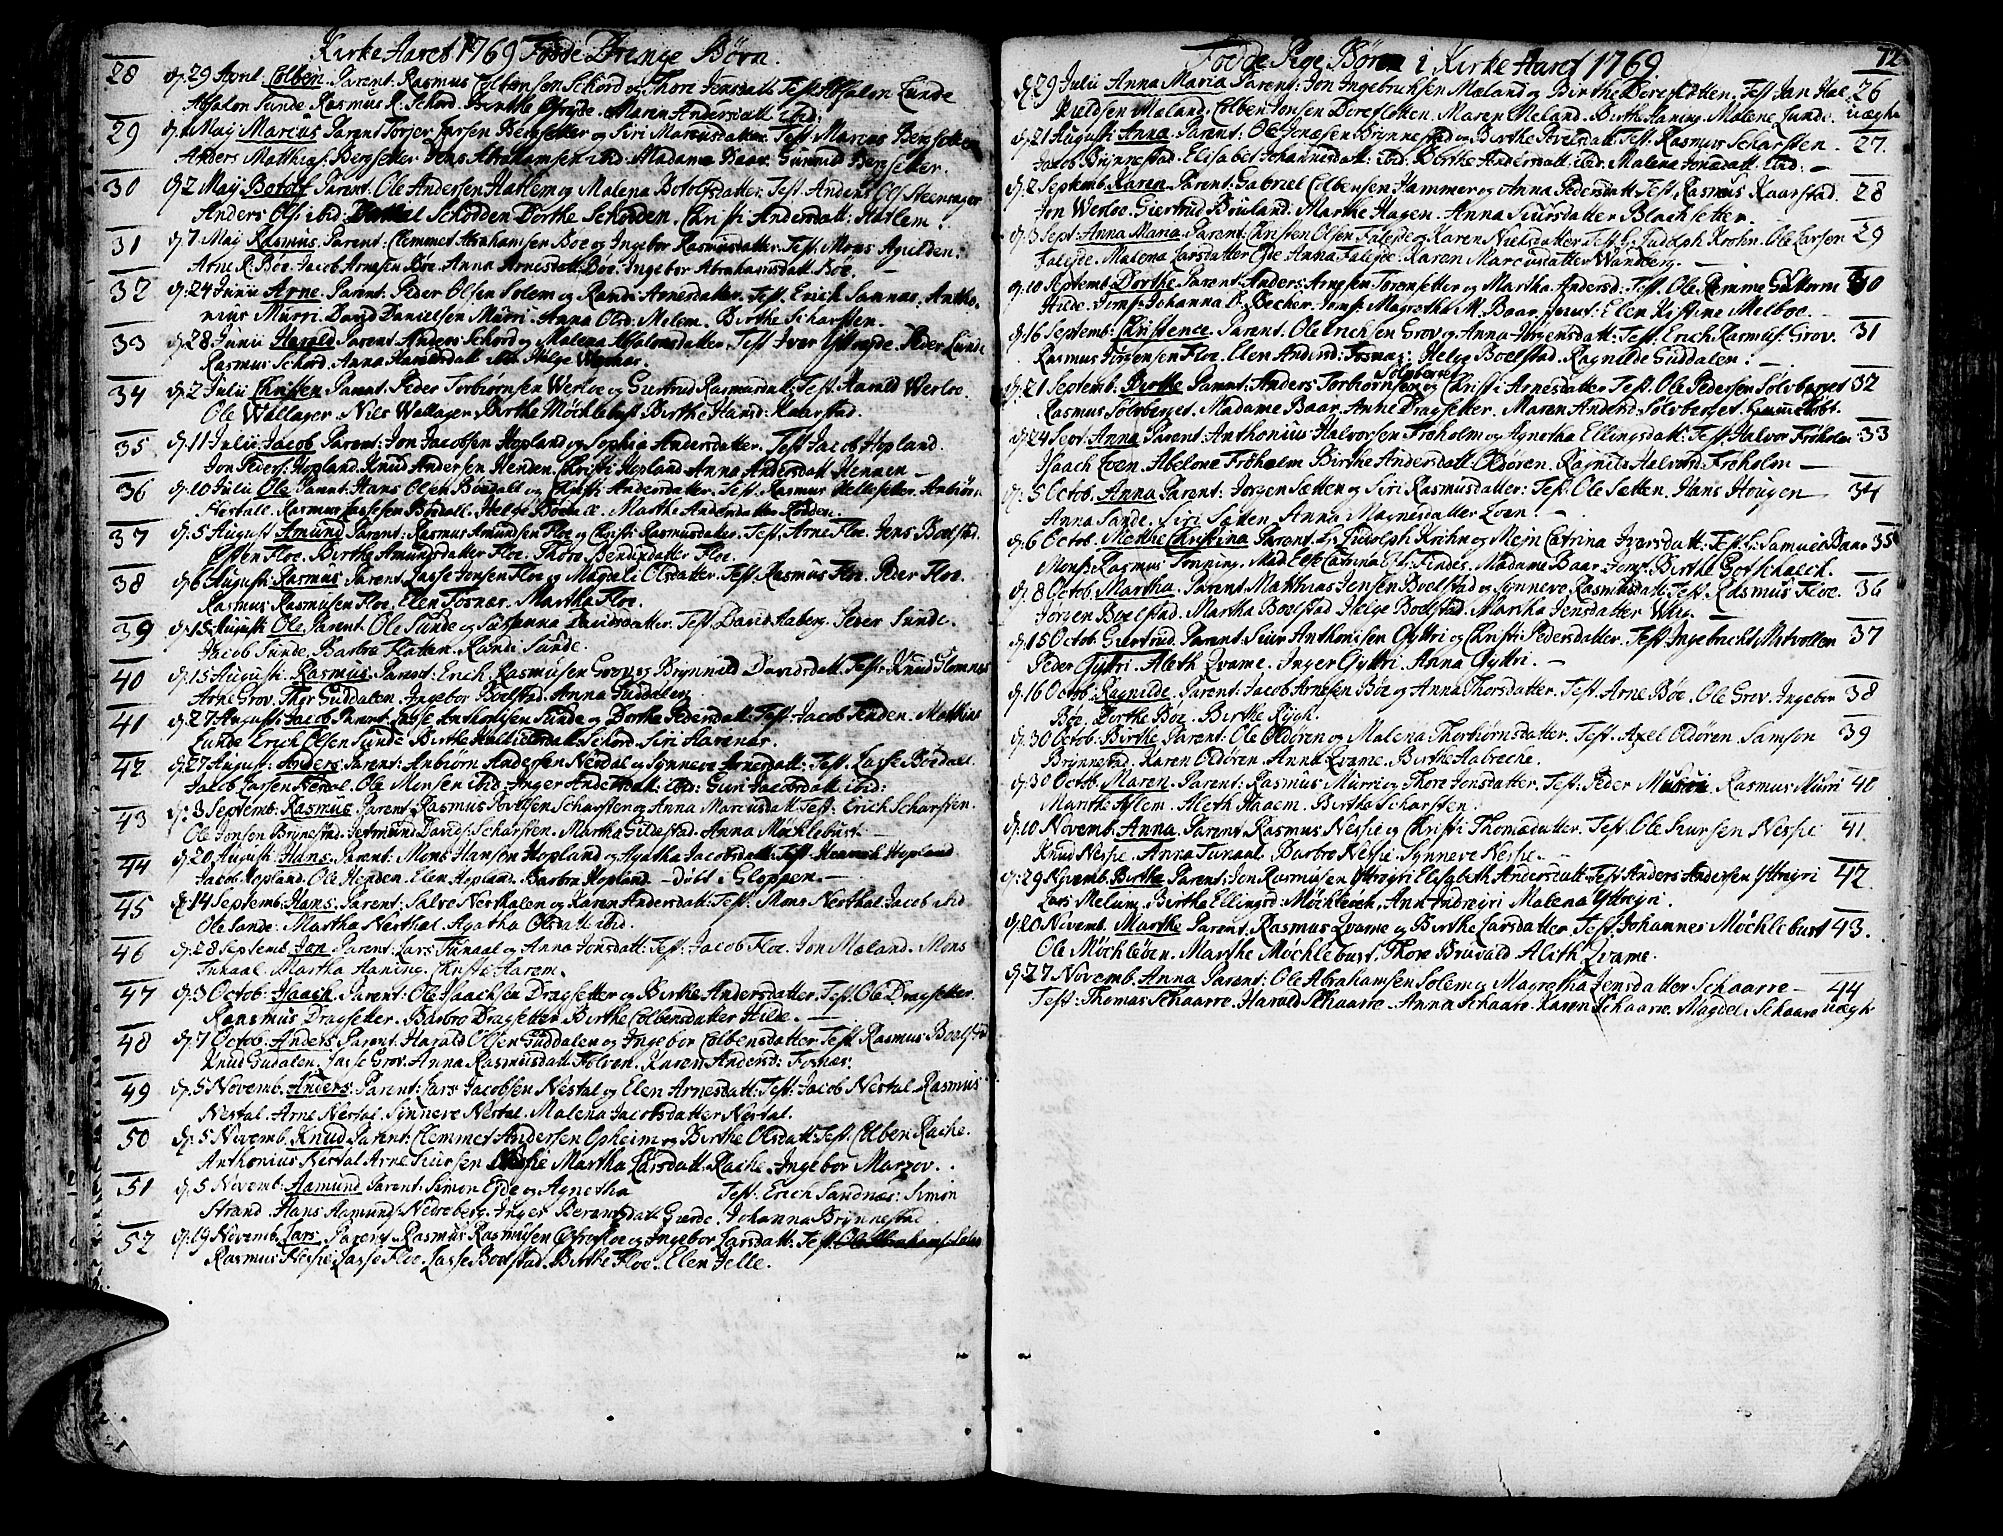 Kirke Aaret 1769 Fødde Drenge Børn.
28 d. 29 April. Colben. Parent: Rasmus Colbensen Schord og Thore Jensdatt: Test: Absalon Lunde
Absalon Sunde Rasmus R. Schord. Birthe Maren Andersdatt ibid:
29 d. 1 Maij Marcus Parent Torjer Larsen Bergsetter og Siri Marcusdatter. Test: Marcus Bergsetter
Anders Matthias Bergsetter Jens Abrahamsen ibid: Madame Baar. Gunnild Bergsetter.
30 d. 2 Maij Botolf Parent: Ole Andersen Hatlem og Malena Botolfsdatter. Test: Anders Ols:
Anders Ols: ibid: Schørden Dorthe Schørden. Christi Andersdatt: Hatlem.
31 d. 7 Maij Rasmus. Parent: Clemmet Abrahamsen Bøe og Ingebor Rasmusdatter. Test: Mons
Arne R: Bøe. Jacob Arnesen Bøe. Anna Arnesdatt: Bøe. Ingebor Abrahamsdatt Bøe. –
32 d. 24 Junii Arne. Parent: Peder Olsen Solem og Randi Arnesdatter. Test: Erich Sannæs. Antho-
nius Murri. David Danielsen Murri. Anna Olsd: Melem. Birthe Scharsten.
33 d. 28 Junii Harald Parent: Anders Schord og Malena Absalonsdatter. Test: Iver Peder Lunde
Rasmus Schord. Anna Helge
34 d. 2 Julii Christen Parent: Peder Torbiørnsen Werloe og Giertrud Rasmusdatt: Test: Harald Werloe.
Ole Wallager. Nils Wallager. Birthe Møchlebust. Birthe Hansd: Kaarstad.
35 d. 11 Julii Jacob Parent: Jon Jacobsen Hopland og Sophia Andersdatter. Test: Jacob Hopland.
Jon Peders: Hopland. Knud Andersen Henden. Christi Hopland Anna Andersdatt Hennen –
36 d. 10 Julii Ole Parent: Hans Olsen Bøedalt og Christi Andersdatter. Test: Rasmus Anbiørn
Rasmus Lassesen Bødall. Helge Marthe Andersdatter
37 d. 5 August Amund Parent: Rasmus Amundsen Floe og Christi Rasmusdatter. Test: Arne Floe. Jens Boelstad
Floe. Birthe Amundsdatter Floe. Thore Bendixdatter Floe.
38 d. 6 Augusti Rasmus Parent: Lasse Jonsen Floe og Magdali Olsdatter. Test: Rasmus Floe. Peder Floe.
Rasmus Rasmusen Floe. Elen Fosnær. Martha Floe.
39 d. 15 Augusti Ole. Parent: Ole Sunde og Davidsdatter. Test: David Aaberg. Peder Sunde.
Jacob Sunde. Barbro Flaten. Randi Sunde.
40 d. 15 Augusti: Rasmus. Parent: Erich Rasmusen Grov og Brynnild Davidsdatt: Test: Knud Glomnes
Arne Grov. Thor Guddalen. Ingebor Boelstad. Anna Guddalen
41 d. 27 Augusti Jacob Parent Lasse Anthonsen Sunde og Dorthe Pedersdatt: Test: Jacob Tenden. Matthias
Lunde Erich Olsen Sunde Birthe Schord. Siri
42 d. 27 August: Anders Parent: Anbiørn Andersen Nesdal og Synneve Arnesdatt: Test: Lasse Bødall
Jacob Larsen Nesdal. Ole Monsen ibid: Inger Andersdatt ibid: Guri Jacobsdatt ibid:
43 d. 3 Septemb: Rasmus Parent: Rasmus Scharsten og Anna Marcusdatt: Test: Erich Scharsten.
Ole Jonsen Brynestad. Davids: Scharsten. Martha Gildestad. Anna Møchlebust. –
44 d. 20 Augusti Hans Parent: Mons Hansen Hopland og Agatha Jacobsdatt: Test: Hopland
Jacob Hopland. Ole Henden. Elen Hopland. Barbra Hopland. – døbt i Gloppen. –
45 d. 14 Septemb: Hans Parent: Salve Nesthalen og Karen Andersdatt: Test: Mons Nesthal Jacob ibid
Ole Sande. Martha Nesthal. Agatha Olsdatt ibid.
46 d. 28 Septemb. Jon Parent: Lars Tunaal og Anna Jonsdatt: Test: Jacob Floe. Jon Mæland. Mons
Tunaal Martha Aaning. Christi Aarem.
47 d. 3 Octob: Isaach Parent: Ole Isaachsen Dragsetter og Birthe Andersdatter. Test: Ole Dragsetter.
Raasmus Dragsetter. Barbro Dragsetter Birthe Colbensdatter Hilde.
48 d. 7 Octob: Anders Parent: Harald Olsen Guddalen og Ingebor Colbensdatter Test: Rasmus Boelstad
Knud Gudalen. Lasse Grov. Anna Rasmusdatt Folven. Karen Andersd: Fosnær.
49 d. 5 Novemb. Anders: Parent: Lars Jacobsen Nestal og Elen Arnesdatt: Test: Jacob Nestal Rasmus
Nestal. Arne Nestal. Synneve Nestal. Malena Jacobsdatter Nestal.
50 d. 5 Novemb. Knud Parent: Clemmet Andersen Opheim og Birthe Olsdatt: Test: Colben Rache.
Anthonius Nestal Arne Siursen Nessie Martha Larsdatt: Rache. Ingebor Marzov.
51 d. 5 Novemb: Aamund Parent: Simon Eyde og Agnetha Test: Erich Sandnæs: Simon
Strand. Hans Aamunds: Nedreberg. Inger Gierde. Johanna Brynnestad
52 d. 19 Novemb Lars Parent: Rasmus Rasmusen og Ingebor Larsdatt: Test: Ole Abrahams: Solem
Rasmus Nessie Lasse Floe. Lasse Boelstad. Birthe Floe. Elen Felle.
Fødde Pige Børn i Kirke Aaret 1769. 72
d. 29 Julii Anna Maria Parent: Jon Ingebrichsen Mæland og Birthe Test: Jan 26
Mæland. Colben Jonsen Maren Meland. Birthe Haning Malene Lunde. uægte
d. 21 Augusti: Anna. Parent: Ole Jonæsen Brynnestad og Birthe Iversdatt: Test: Rasmus Scharsten. 27.
Jacob Brynnestad. Elisabet Johannesdatt: ibid: Birthe Andersdatt: ibid: Malena Jonsdatt: ibid: –
d. 2 Septemb. Karen. Parent: Gabriel Colbensen Hammer og Anna Pedersdatt: Test: Rasmus Kaarstad. 28
Jon Werloe. Giertrud Bøuland: Marthe Hagen. Anna Siursdatter Blachsetter.
d. 3 Sept: Anna Maria. Parent: Christen Olsen Faleide og Karen Nielsdatter Test: Hr. Ludolph Krohn. Ole Larsen 29
Faleide. Malena Larsdatter Eide Anna Faleide. Karen Marcusdatter Wandberg. –
d. 10 Septemb. Dorthe Parent: Anders Arnesen Torensetter og Martha Andersd: Test: Ole 30
Hilde. Jomf: Johanna E. Becher. Jomf: Magretha M. Baar. Jomf: Elen Kistine Melboe.
d. 16 Septemb: Christence. Parent: Ole Erichsen Grov og Anna Jørgensdatt: Test: Erich Rasmus: Grov. 31
Rasmus Jørgensen Floe. Elen Andersd: Fosnæs. Helge Boelstad. Ragnilde Guddalen.
Sølvberget
d. 21 Septemb. Birthe Parent: Anders Torbiørnsen og Christi Arnesdatter: Test: Ole Pedersen Sølvberget 32
Rasmus Sølvberget. Madame Baar. Anne Dragsetter. Maren Andersd: Sølvberget. hiemmedøbt.
d. 24 Sept: Anna Parent: Anthonius Halvorsen Frøholm og Agnetha Ellingsdatt: Test: Halvor Frøholm 33
Isaach Loen. Abelone Frøholm Birthe Andersdatt: Oldøren. Ragnild Halvord: Frøholm –
d. 5 Octob. Anna Parent: Jørgen Sætten og Siri Rasmusdatter: Test: Ole Sætten. Hans Hougen – 34
Anna Sande. Siri Sætten. Anna Magnesdatter Loen –
d. 6 Octob. Mette Christina Parent: Hr. Ludolph Krohn og Mejn Catrina Iversdatt: Test: Hr. Samuel Baar 35
Rasmus Tønning. Mad: Else Catrina Findes. Madame Baar. Jomf: Birthe
d. 8 Octob. Martha. Parent: Matthias Jensen Boelstad og Synneve Rasmusdatt: Test: Rasmus Floe. 36
Jørgen Boelstad. Martha Boelstad Helge Boelstad. Martha Jensdatter Wiig.
d. 15 Octob. Giertrud. Parent: Siur Anthonisen Gyttri og Christi Pedersdatter. Test: Ingebricht Melvollen 37
Peder Gyttri. Aleth Qvame. Inger Gyttri. Anna Gyttri. –
d. 16 Octob: Ragnilde. Parent: Jacob Arnesen Bøe og Anna Thorsdatter. Test: Arne Bøe. Ole Grov. Ingebor 38
Bøe. Dorthe Bøe. Birthe Rygh.
d. 30 Octob. Birthe Parent: Ole Oldøren og Malena Thorbiørnsdatter. Test: Axel Oldøren. Samson 39
Brynnestad. Karen Oldøren. Anna Qvame. Birthe Aabreche.
d. 30 Octob. Maren. Parent: Rasmus Murri og Thore Jonsdatter. Test: Peder Murri. Rasmus Murri 40
Marthe Melem. Aleth Haaem. Birthe Scharsten.
d. 10 Novemb. Anna. Parent: Rasmus Nessie og Christi Thomadatter. Test: Ole Siursen Nessie 41
Knud Nessie. Anna Tunaal. Barbro Nessie. Synneve Nessie.
d. 29 Novemb. Birthe Parent: Jon Rasmusen Yttreyri Elisabeth Andersdatt: Test: Anders Andersen Yttreyri 42
Lars Melum. Birthe Ellingsd: Ann Andreyri Malena Yttreyri.
d. 20 Novemb. Marthe Parent: Rasmus Qvame og Birthe Larsdatter. Test: Johannes Møchlebust 43.
Ole Møchløen. Marthe Møchlebust. Thore Bruvald Aleth Qvame.
d. 27 Novemb. Anna Parent: Ole Abrahamsen Solem og Magretha Jensdatter Schaarre – 44
Test: Thomas Schaarre. Harald Schaarre. Anna Schaare. Karen Schaarre. Magdel: Schaare uægte